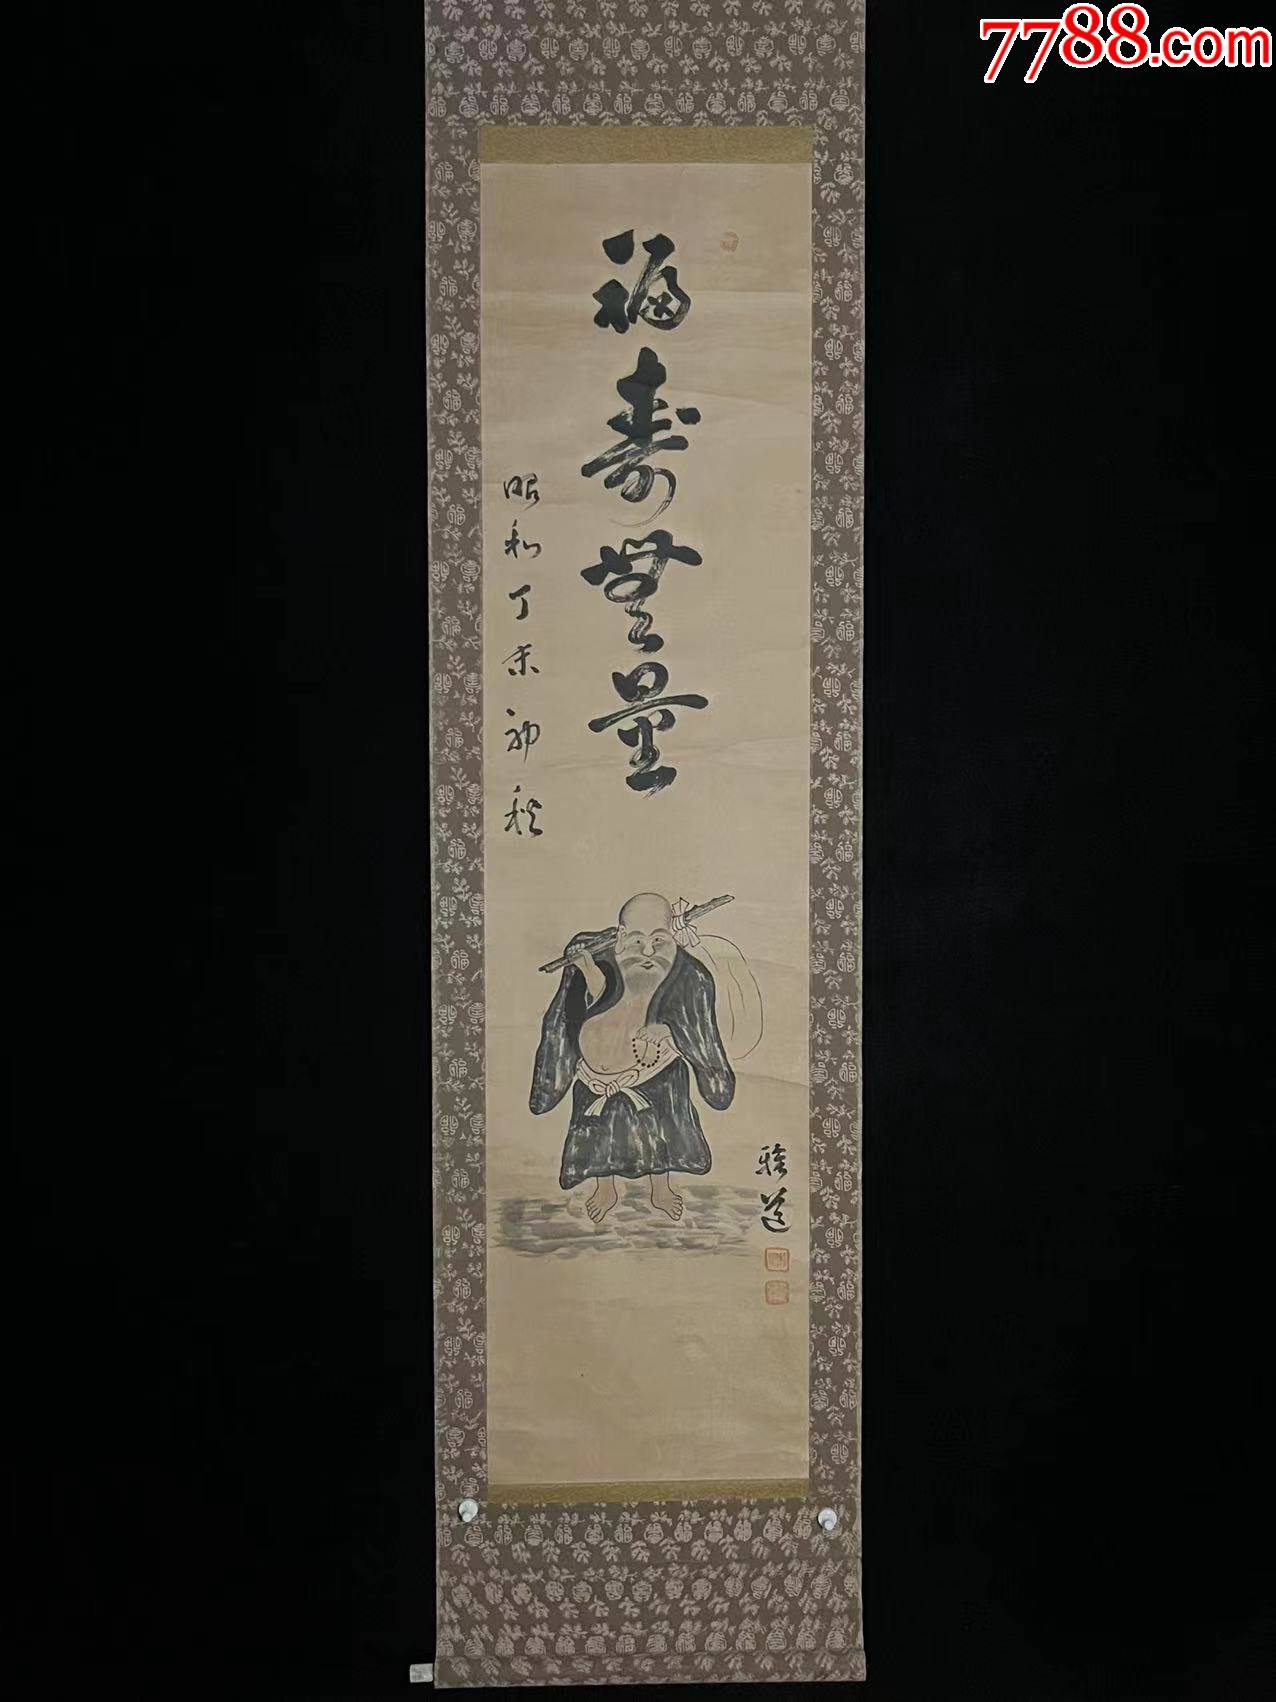 7788.com
福壽無量
昭和丁未初秋